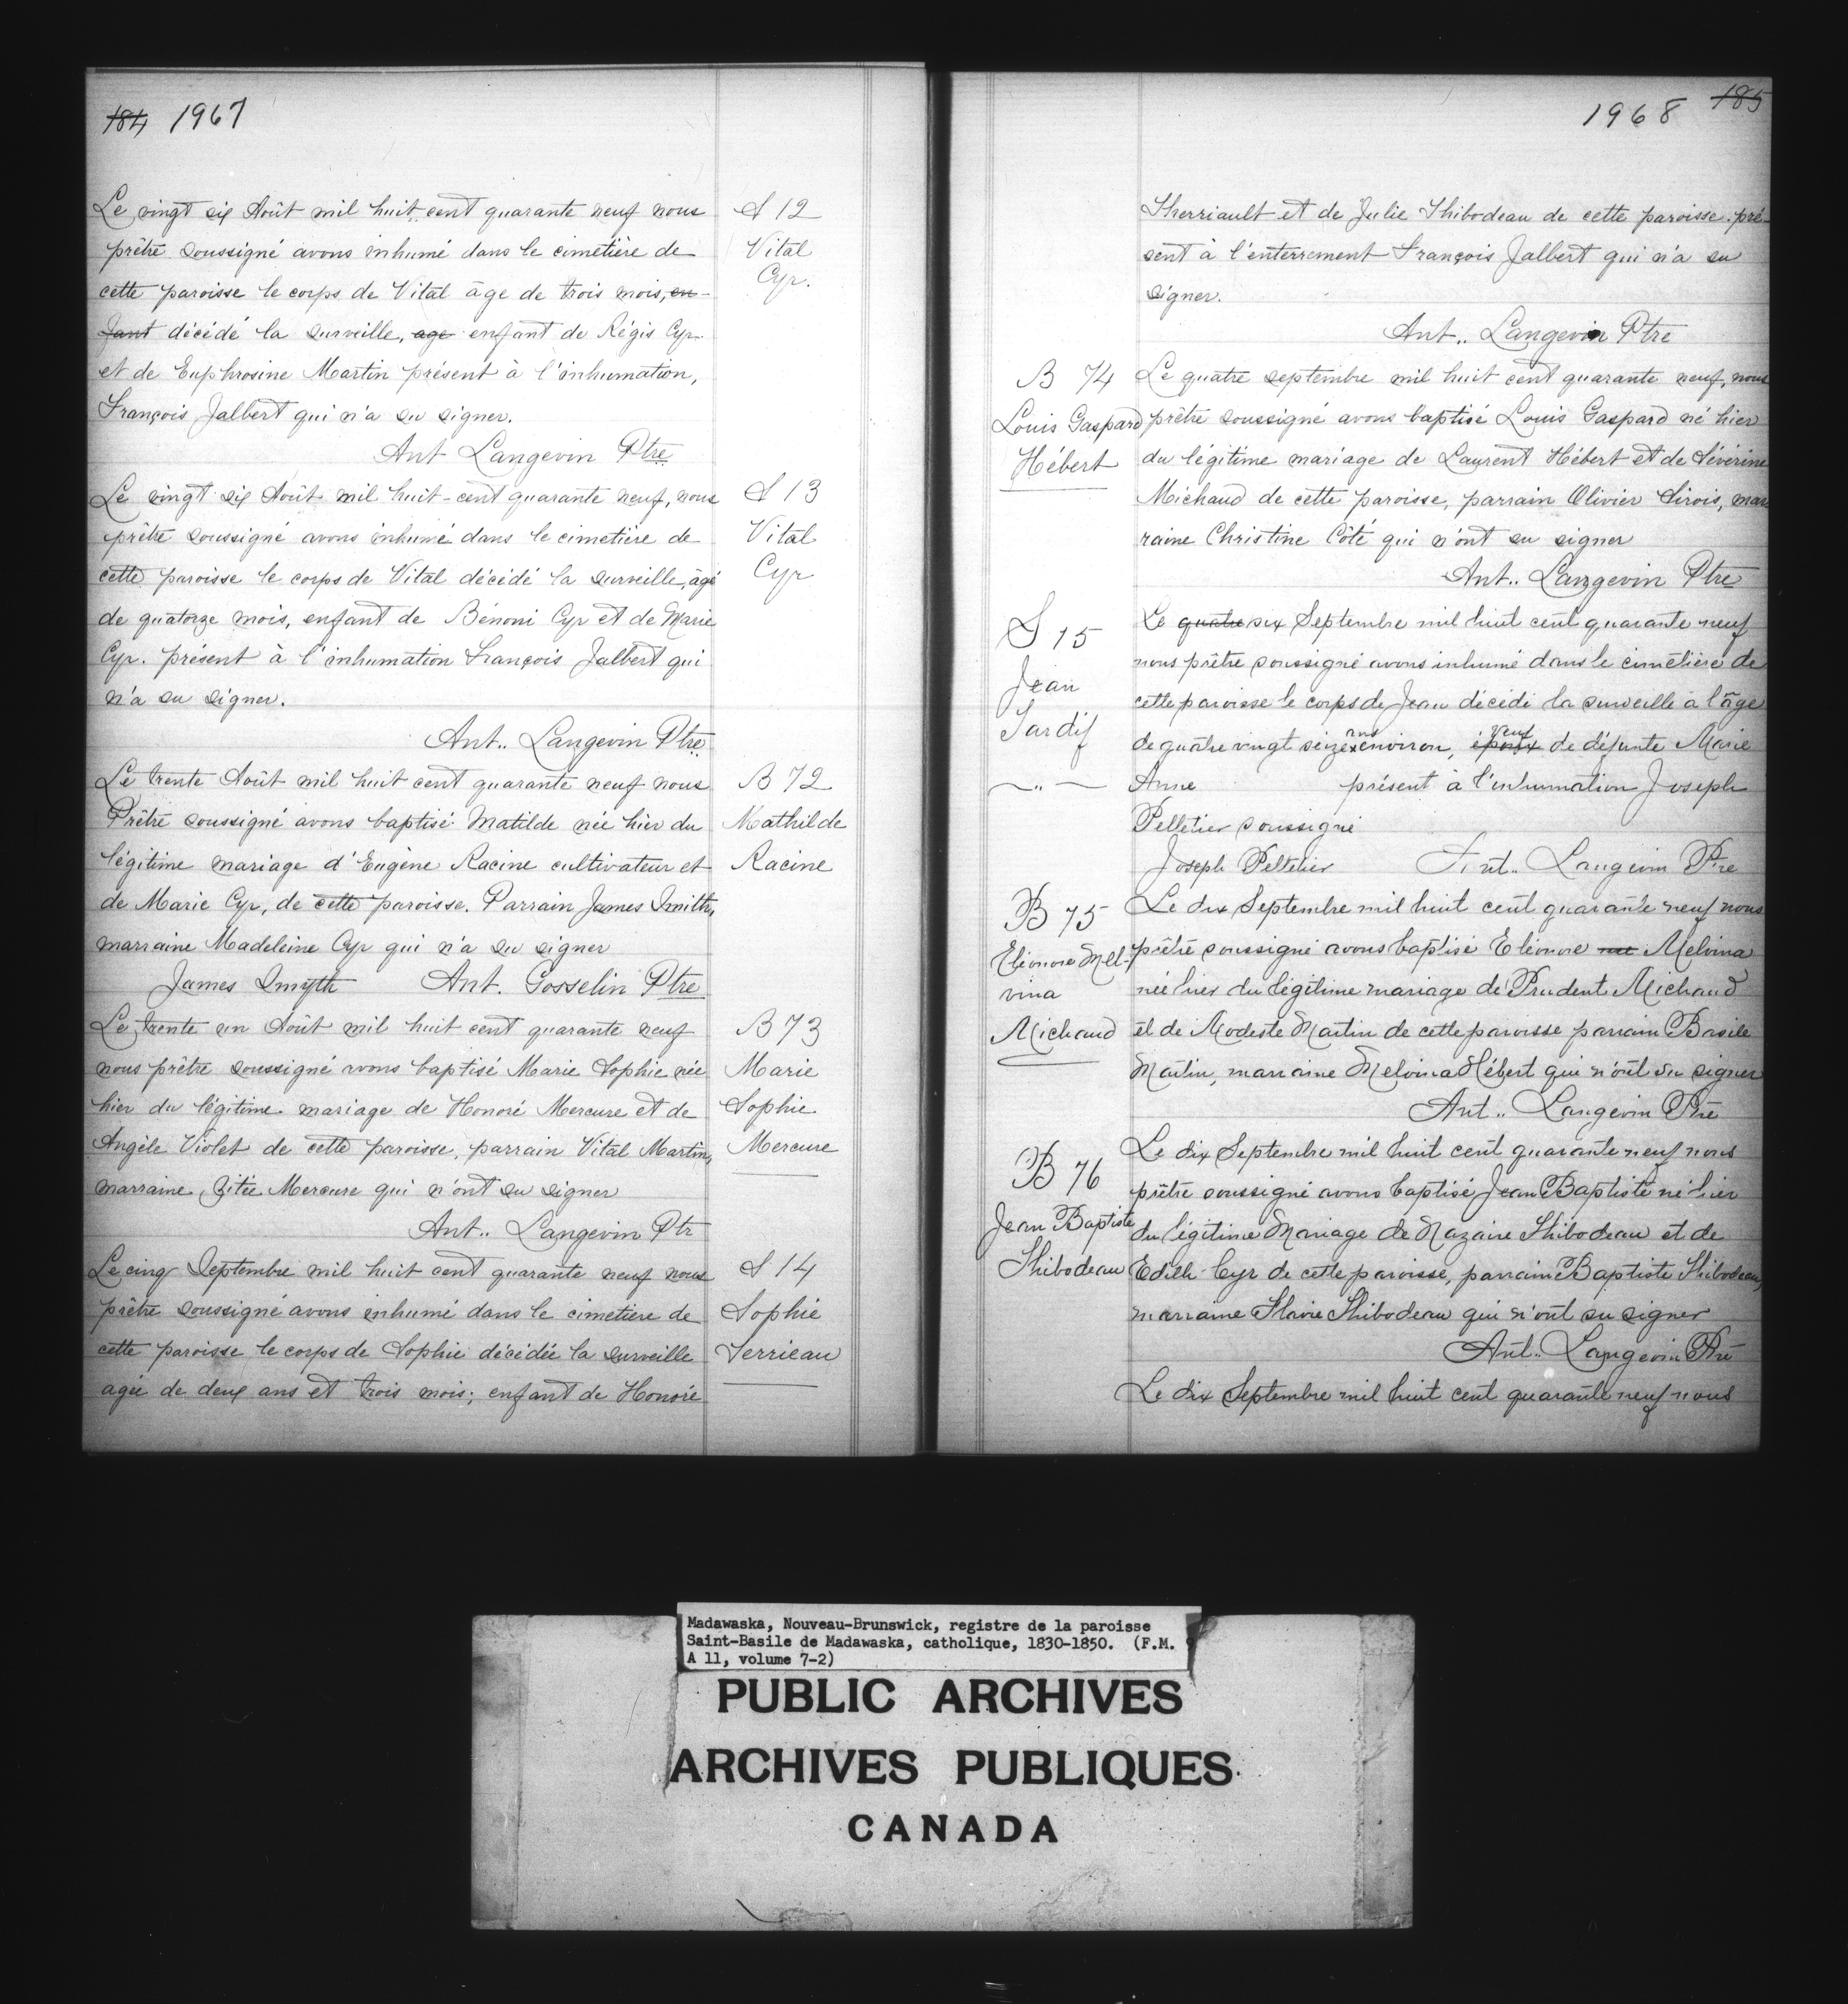 184 1967
Le vingt six Août mil huit cent quarante neuf nous
prêtre soussigné avons inhumé dans le cimetière de
cette paroisse le corps de Vital âge de trois mois, en-
fant décédé la surveille, age enfant de Régis Cyr
et de Euphrosine Martin présent à l'inhumation,
François Jalbert qui n'a su signer.
Ant Langevin Ptre
S 12
Vital
Cyr.
Le vingt six Août mil huit-cent quarante neuf, nous
prêtre soussigné avons inhumé dans le cimetière de
cette paroisse le corps de Vital décédé la surveille, âgé
de quatorze mois, enfant de Bénoni Cyr et de Marie
Cyr. présent à l'inhumation François Jalbert qui
n'a su signer.
Ant.. Langevin Ptre
S 13
Vital
Cyr
Le trente Août mil huit cent quarante neuf nous
Prêtre soussigné avons baptisé Matilde née hier du
légitime mariage d'Eugène Racine cultivateur et
de Marie Cyr, de cette paroisse. Parrain James Smith,
marraine Madeleine Cyr qui n'a su signer
James Smyth Ant. Gosselin Ptre
B 72
Mathilde
Racine
Le trente un Août mil huit cent quarante neuf
nous prêtre soussigné avons baptisé Marie Sophie née
hier du légitime mariage de Honoré Mercure et de
Angèle Violet de cette paroisse, parrain Vital Martin,
marraine Zitée Mercure qui n'ont su signer
Ant.. Langevin Ptr
B 73
Marie
Sophie
Mercure
Le cinq Septembre mil huit cent quarante neuf nous
prêtre soussigné avons inhumé dans le cimetiere de
cette paroisse le corps de Sophie décédée la surveille
agée de deux ans et trois mois; enfant de Honoré
S 14
Sophie
Terrieau
1968 185
Therriault et de Julie Thibodeau de cette paroisse. pré-
sent à l'enterrement François Jalbert qui n'a su
signer.
Ant.. Langevin Ptre
B 74
Louis Gaspard
Hébert
Le quatre septembre mil huit cent quarante neuf, nous
prêtre soussigné avons baptisé Louis Gaspard né hier
du légitime mariage de Laurent Hébert et de Séverine
Michaud de cette paroisse, parrain Olivier Sirois, mar
raine Christine Côté qui n'ont su signer
Ant.. Langevin Ptre
S 15
Jean
Tardif
Le quatre six Septembre mil huit cent quarante neuf
nous prêtre soussigné avons inhumé dans le cimetière de
cette paroisse le corps de Jean décédé la surveille à l'âge
de quatre vingt seize ans environ, époux veuf de défunte Marie
Anne présent à l'inhumation Joseph
Pelletier soussigné
Joseph Pelletier Ant.. Langevin Ptre
B 75
Eléonore Mel-
vina
Michaud
Le dix Septembre mil huit cent quarante neuf nous
prêtre soussigné avons baptisé Eléonore nee Melvina
née hier du légitime mariage de Prudent Michaud
et de Modeste Martin de cette paroisse parrain Basile
Martin, marraine Melvina Hébert qui n'ont su signer
Ant.. Langevin Ptre
B 76
Jean Baptiste
Thibodeau
Le dix Septembre mil huit cent quarante neuf nous
prêtre soussigné avons baptisé Jean Baptiste né hier
du légitime Mariage de Nazaire Thibodeau et de
Edith Cyr de cette paroisse, parrain Baptiste Thibodeau,
marraine Flavie Thibodeau qui n'ont su signer
Ant.. Langevin Ptre
Le dix Septembre mil huit cent quarante neuf nous
Madawaska, Nouveau-Brunswick, registre de la paroisse
Saint-Basile de Madawaska, catholique, 1830-1850. (F.M.
A 11, volume 7-2)
PUBLIC ARCHIVES
ARCHIVES PUBLIQUES
CANADA